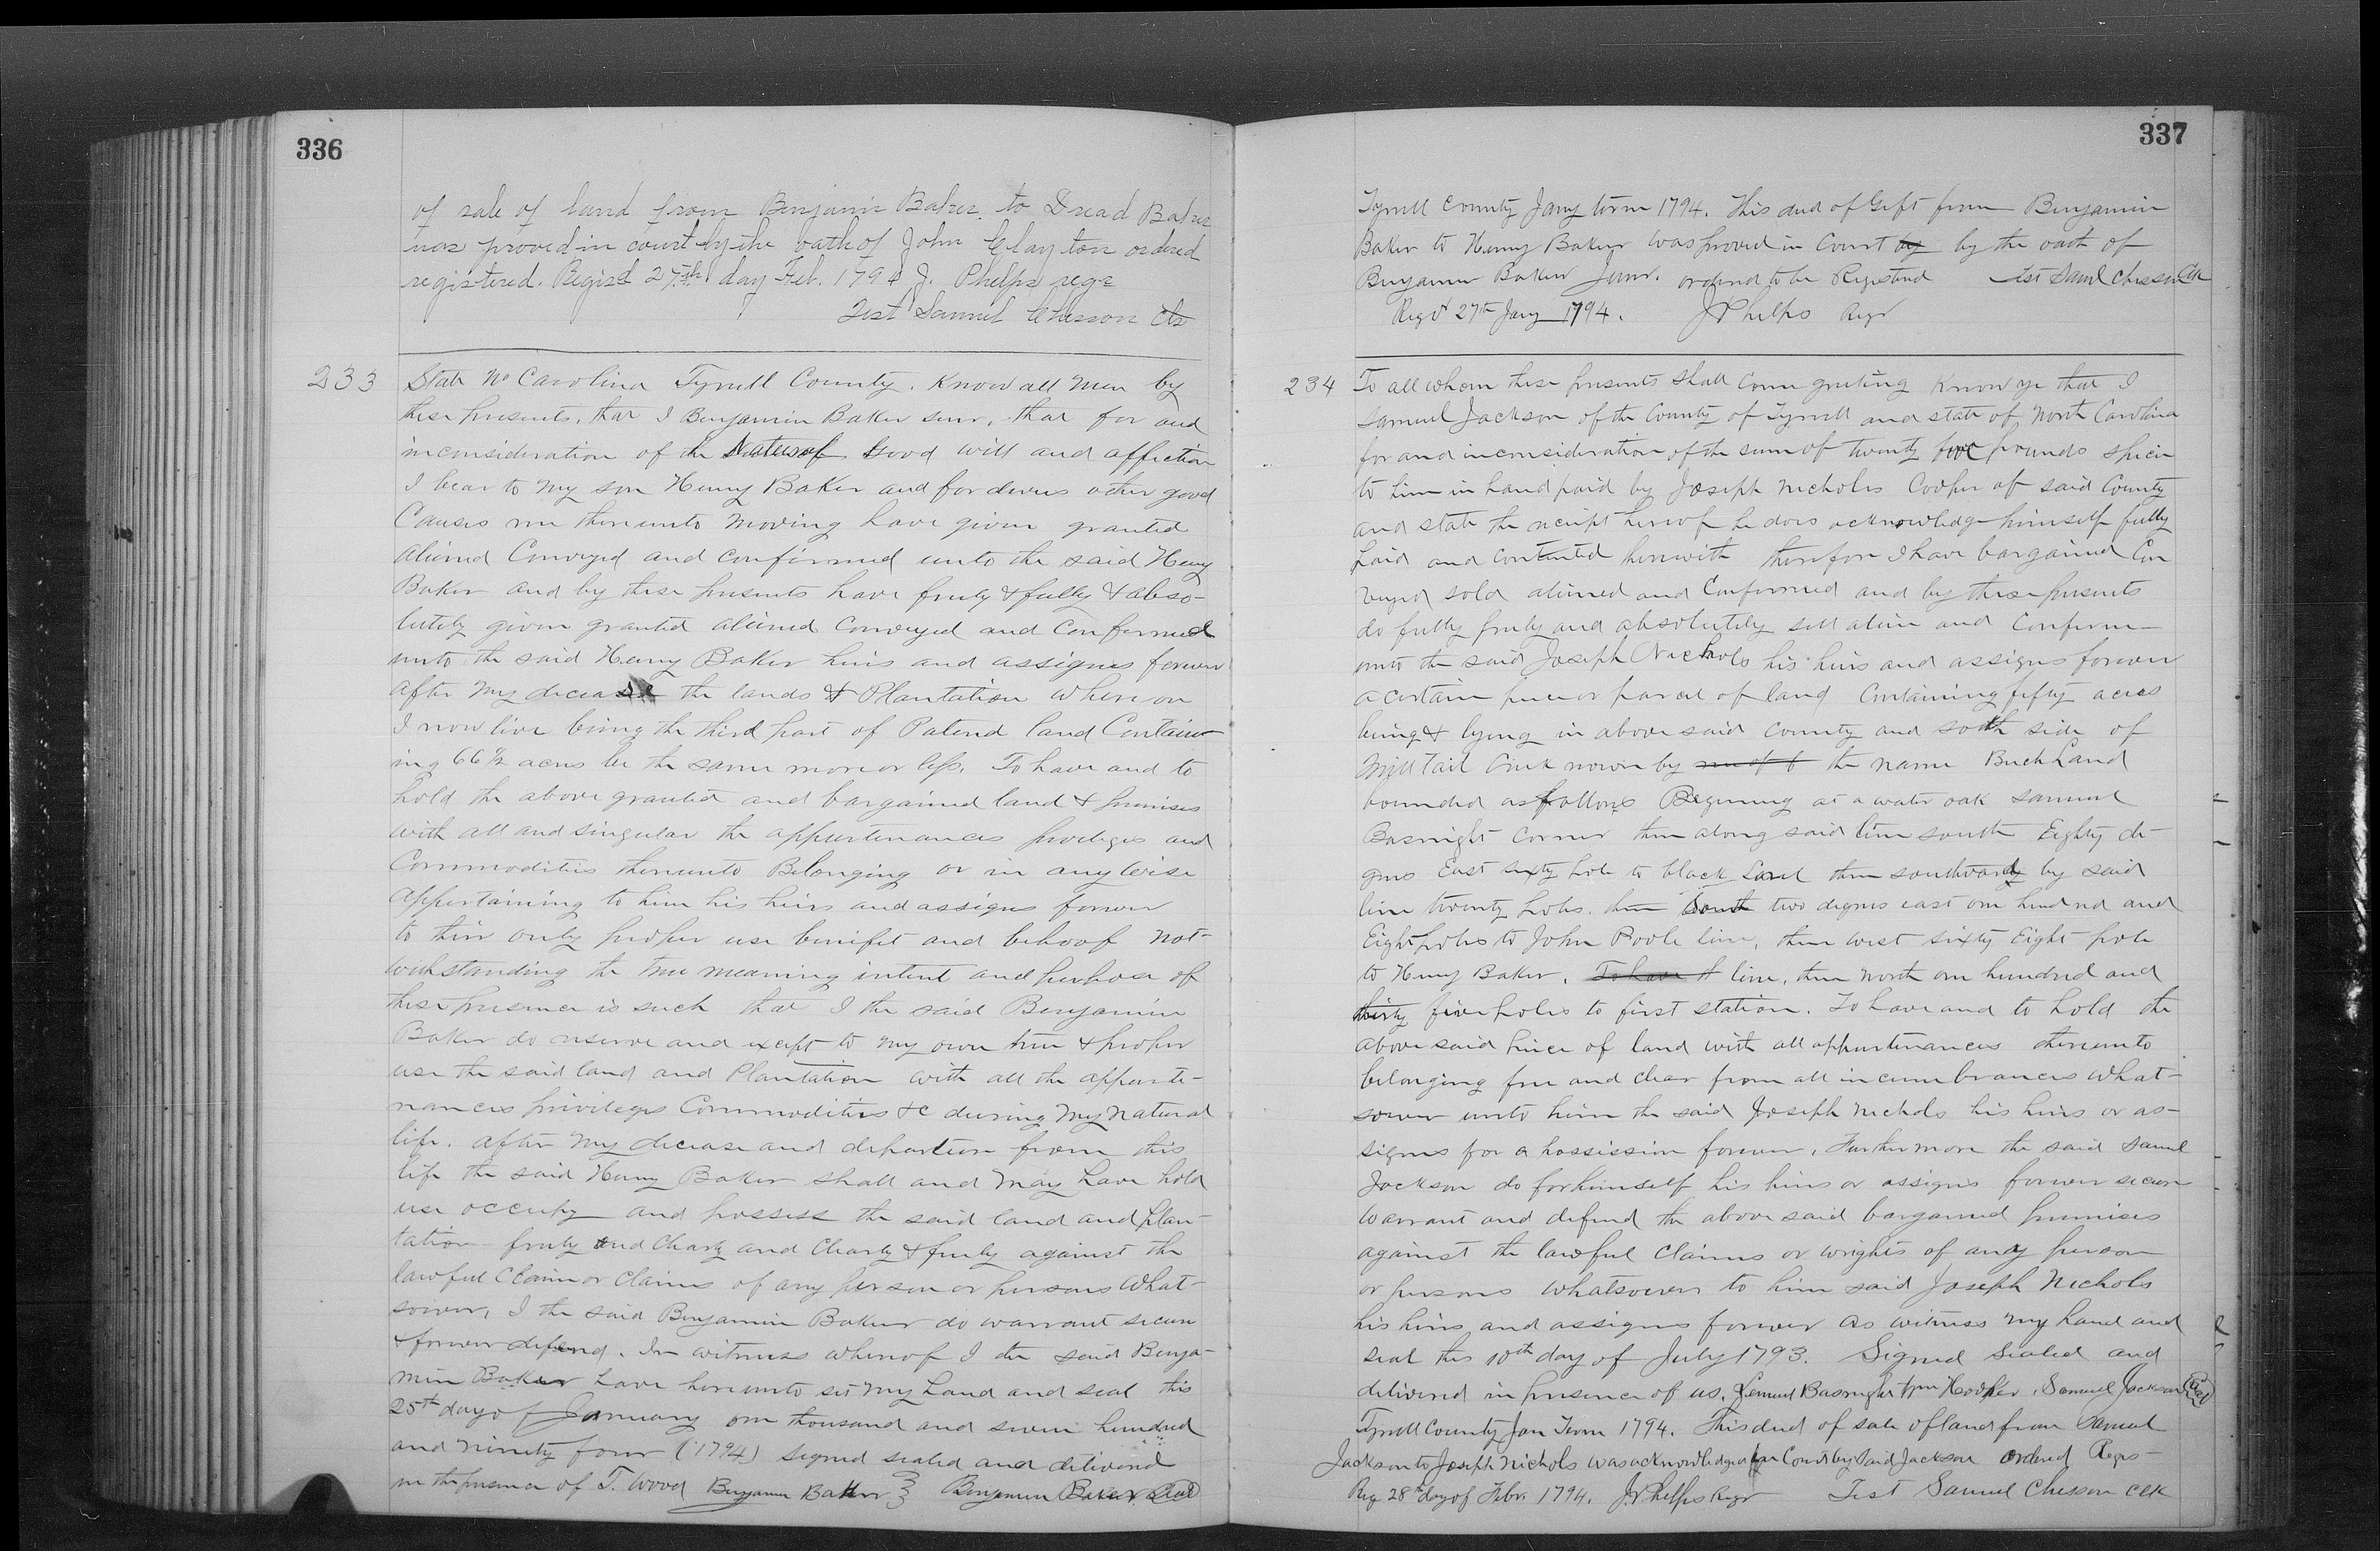 336
of sale of land from Benjamin Baker to Dread Baker
was proved in court by the oath of John Clayton ordered
registered. Regisd 27th day Feb. 1794 J. Phelps regr
Test Samuel Chesson Clk
233
State No Carolina Tyrrell County. Know all men by
these presents, that I Benjamin Baker senr, that for and
inconsideration of the Natureof Good will and affection
I bear to my son Henry Baker and for divers other good
Causes me thereunto moving have given granted
aliened Conveyed and confirmed unto the said Henry
Baker and by these presents have freely & fully & abso-
lutely given granted aliened Conveyed and Confirmed
unto the said Henry Baker heirs and assigns forever
after my decease the lands & Plantation whereon
I now live being the third part of Patend land Contain-
ing 66 1/2 acres be the same more or less. To have and to
hold the above granted and bargained land & premises
with all and singular the appurtenances priviliges and
Commodities thereunto Belonging or in anywise
appertaining to him his heirs and assigns forever
to their only proper use benifit and behoof not-
withstanding the true meaning intent and purpose of
these presence is such that I the said Benjamin
Baker do reserve and except to my own true & proper
use the said land and Plantation with all the appurte-
nances privileges Commodities &c during my natural
life. after my decease and departure from this
life the said Henry Baker shall and may have hold
use occupy and possess the said land and plan-
tation freely and Clearly and Clearly & freely against the
lawful Claim or Claims of any person or persons What-
soever, I the said Benjamin Baker do warrant secure
& forever defend. In witness whereof I the said Benja-
min Baker have hereunto set my hand and seal this
25th day of January one thousand and seven hundred
and ninety four (1794) signed sealed and delivered
in the presence of T. Wood Benjamin Baker Benjamin Baker Seal
337
Tyrrell County Jany term 1794. This deed of Gift from Benjamin
Baker to Henry Baker was proved in Court by by the oath of
Benjamin Baker Junr. ordered to be Registered Test Saml Chesson Clk
Regd 27th Jany 1794. J Phelps Regr
234
To all whom these presents shall Come greeting Know ye that I
Samuel Jackson of the County of Tyrrell and state of North Carolina
for and inconsideration of the sum of twenty five pounds specie
to him in hand paid by Joseph Nicholes Cooper of said County
and state the receipt hereof he does acknowledge himself fully
paid and contented herewith therefore I have bargained Con
veyed sold aliened and Confirmed and by these presents
do fully freely and absolutely sell alien and Confirm
unto the said Joseph Nichols his heirs and assigns forever
a certain piece or parcel of land Containing fifty acres
being & lying in above said County and south side of
Mill tail Creek nown by the name Buck Land
bounded as follows Begining at a water oak Samuel
Basnight Corner then along said line south Eighty de-
grees East sixty pole to black Land then southwardly by said
line twenty poles. then South two degrees east one hundred and
Eight poles to John Poole line, then west sixty Eight pole
to Henry Baker. To have & line, then north one hundred and
thirty five poles to first station. To have and to hold the
above said piece of land with all appurtenances thereunto
belonging free and clear from all incumbrances what-
soever unto him the said Joseph Nichols his heirs or as-
signes for a possission forever. Furthermore the said Samuel
Jackson do for himself his heirs or assigns forever secure
warrant and defend the above said bargained premises
against the lawful Claims or wrights of any person
or persons whatsoever to him said Joseph Nichols
his heirs and assigns forever as witness my hand and
seal this 10th day of July 1793. Signed Sealed and
delivered in presence of us. Lemuel Basnight Wm Hooker. Samuel Jackson Seal
Tyrrell County Jan Term 1794. This deed of sale of land from Samuel
Jackson to Joseph Nichols was acknowledged in Court by Said Jackson Ordered Regis-
Reg 28th day of Febr. 1794. J Phelps Regr Test Samuel Chesson Clk